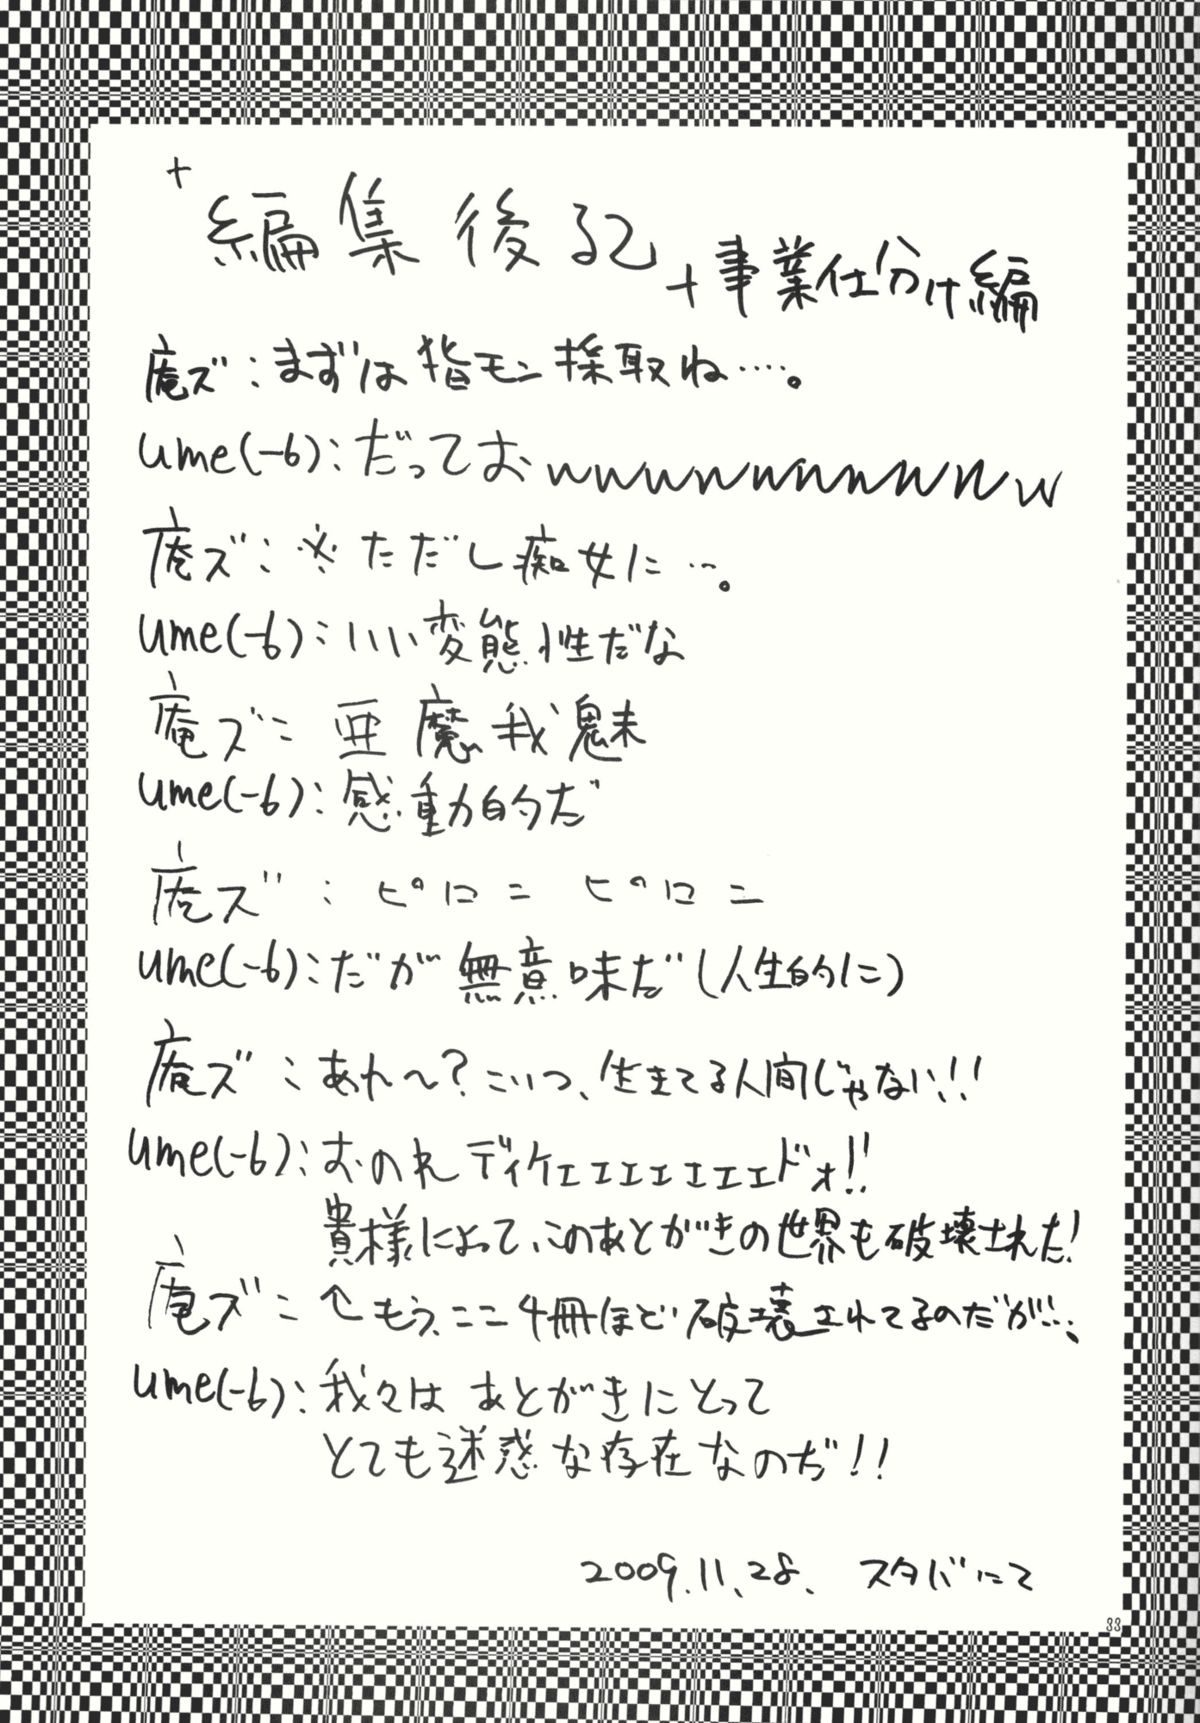 +
編集後記
+事業仕分け編
庵ズ:まずは指モン採取ね….。
ume(-6):だっておwwwwwwwwwww
庵ズ:※ただし痴女に…。
ume(-6):いい変態性だな
庵ズ:亜魔我魅
ume(-6):感動的だ
庵ズ:ピロニ ピロニ
ume(-6):だが無意味だ(人生的に)
庵ズ:あれ〜?こいつ、生きてる人間じゃない!!
ume(-6):おのれディケェェェェェェェドォ!!
貴様によって、このあとがきの世界も破壊された!
庵ズ:↑もう、ここ4冊ほど破壊されてるのだが…、
ume(-6):我々はあとがきにとって
とても迷惑な存在なのぢ!!
2009.11.28. スタバにて
33